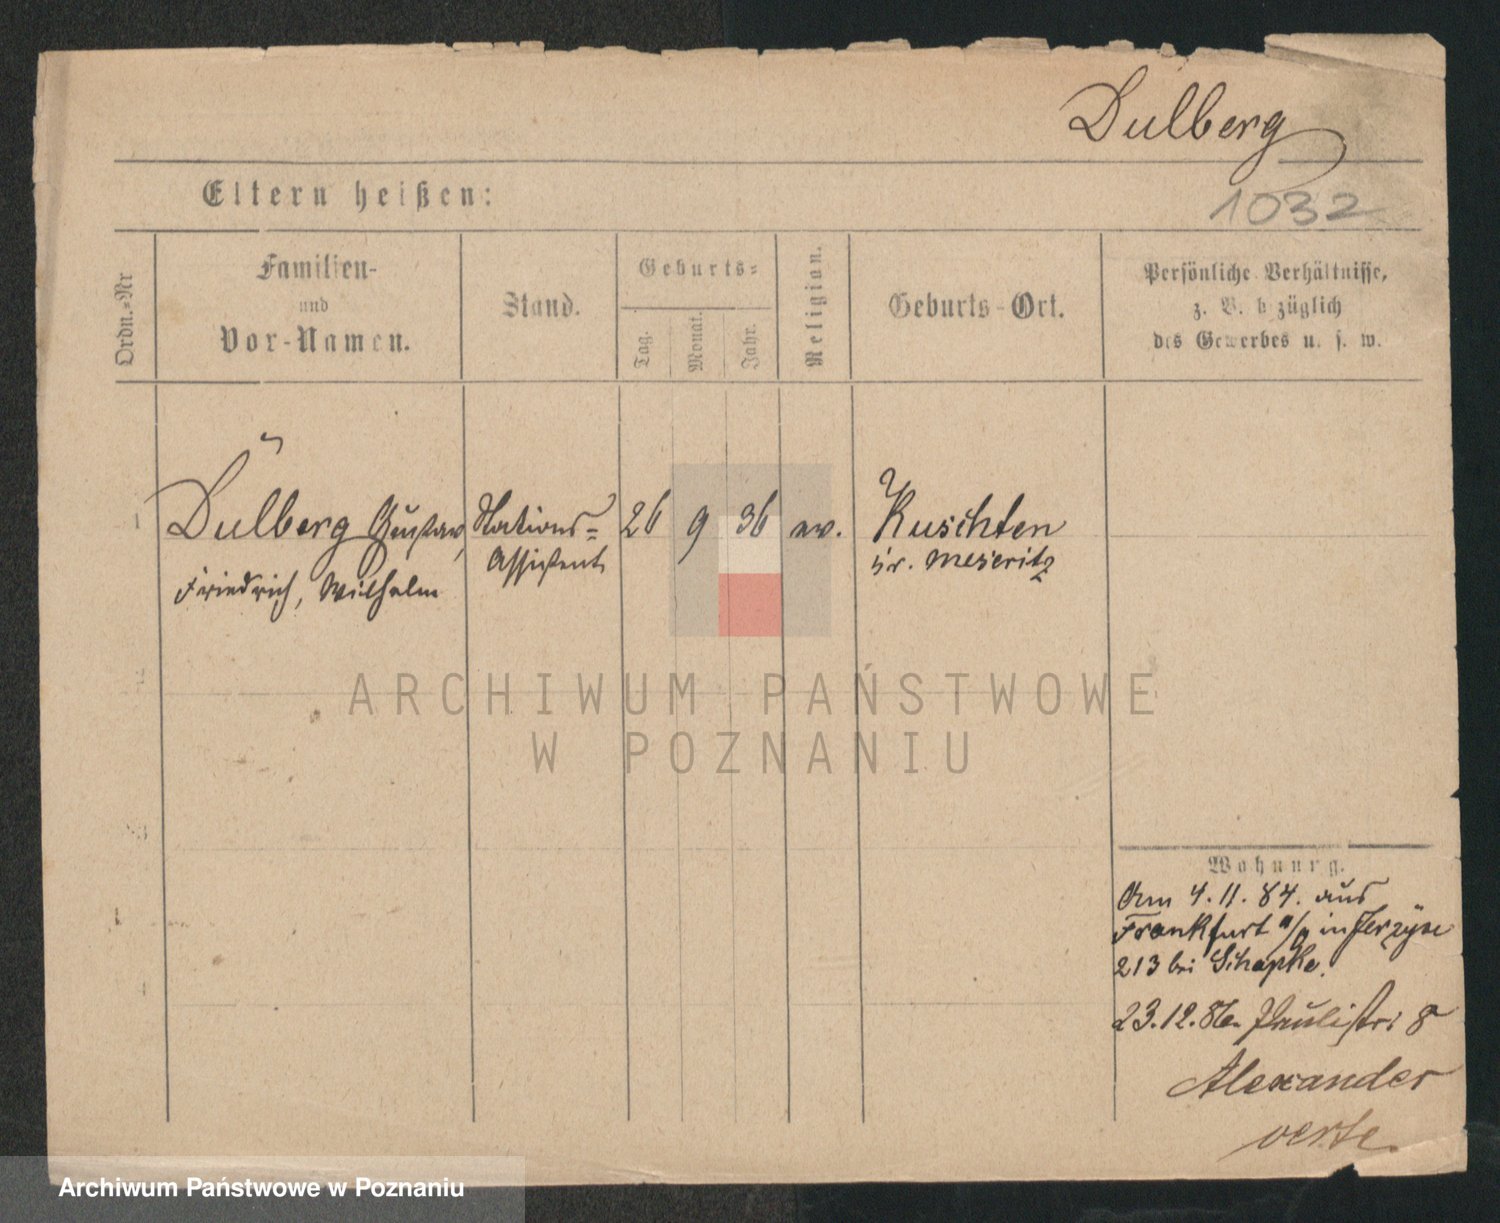 Dulberg
1032
Eltern heißen:
Ordn.-Nr
Familien-
und
Vor-Namen.
Stand.
Geburts-
Tag.
Monat.
Jahr.
Religion.
Geburts-Ort.
Persönliche Verhältnisse,
z. B. bezüglich
des Gewerbes u. s. w.
1
Dülberg Gustav,
Friedrich, Wilhelm
Stations-
Assistent
26 9 36 ev.
Kuschten
Kr. Meseritz
2
3
ARCHIWUM PAŃSTWOWE
W POZNANIU
Wohnung.
Am 4.11.84. aus
Frankfurt a/O in Jerzyce
213 bei Schapke.
23.12.86. Paulistr. 8
Alexander
verte.
Archiwum Państwowe w Poznaniu